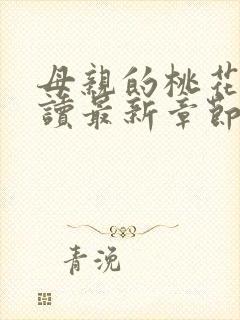 母親的桃花
讀最新章節
青浼